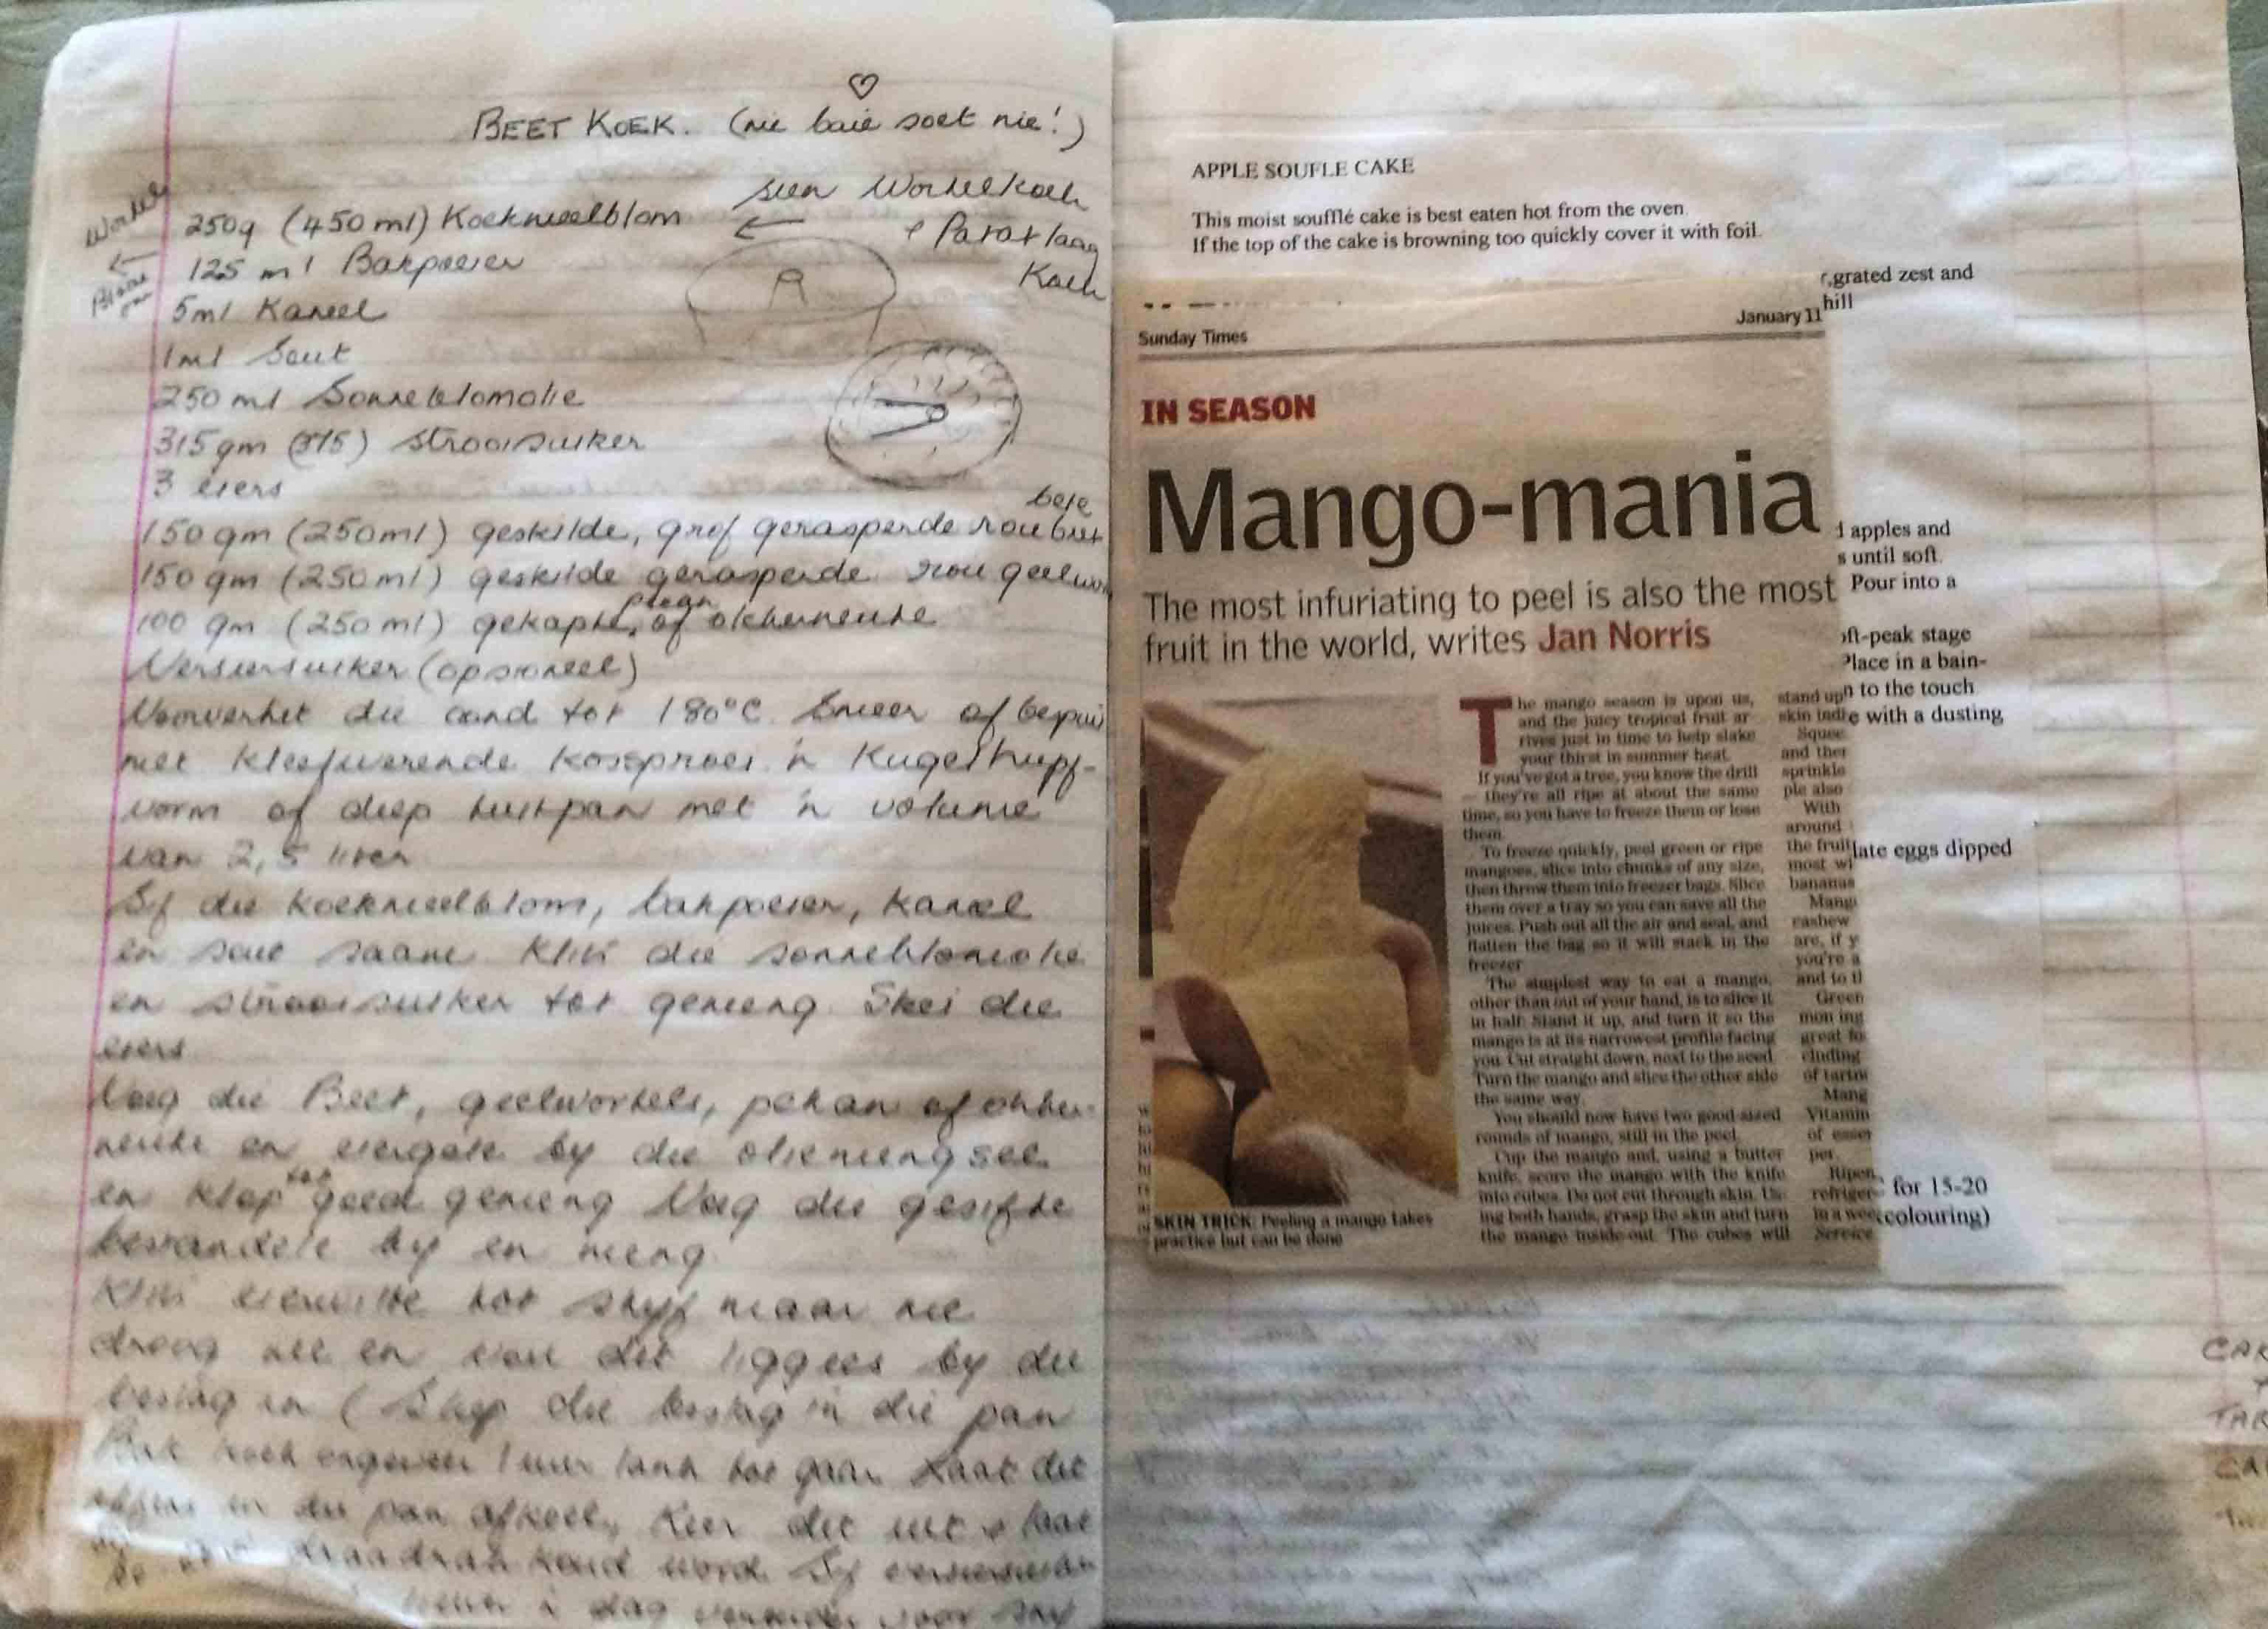 BEET KOEK. (nie baie soet nie!)
sien Wortelkoek
← & Pa laag
Koek
Wortel
←
250g (450 ml) Koekmeelblom
125 ml Bakpoeier
5ml Kaneel
1ml Sout
250 ml Sonneblomolie
315 gm (375) strooisuiker
3 eiers
bete
150 gm (250ml) geskilde, grof geraspende rou
150 gm (250 ml) geskilde geraspende rou geelwor
pekan
100 gm (250 ml) gekapte, of okkerneute
Versiersuiker (opsioneel)
Voorverhit die oond tot 180°C. Smeer of bespui
met kleefwerende kossproei 'n Kugelhupf-
vorm of diep tertpan met 'n volume
van 2,5 liter
Sif die koekmeelblom, bakpoeier, kaneel
en sout saam. Klits die sonneblomolie
en strooisuiker tot gemeng. Skei die
eiers
Voeg die Beet, geelwortels, pekan of okker-
neute en eiergele by die oliemengsel
tot
en klop goed gemeng Voeg die gesifte
bestandele by en meng
Klits eierwitte tot styf maar nie
droog nie en vou dit liggies by die
beslag in (Skep die beslag in die pan
Bak koek ongeveer 1 uur lank tot gaar Laat dit
in die pan afkoel, Keer dit uit & laat
draadrak koud word. Sif versiersuiker
'n dag voor
APPLE SOUFLE CAKE
This moist soufflé cake is best eaten hot from the oven.
If the top of the cake is browning too quickly cover it with foil.
grated zest and
hill
Sunday Times
January 11
IN SEASON
Mango-mania
The most infuriating to peel is also the most
fruit in the world, writes Jan Norris
apples and
s until soft.
Pour into a
ft-peak stage
Place in a bain-
n to the touch
e with a dusting
late eggs dipped
for 15-20
colouring)
The mango season is upon us,
and the juicy tropical fruit ar-
rives just in time to help slake
your thirst in summer heat.
If you've got a tree, you know the drill
— they're all ripe at about the same
time, so you have to freeze them or lose
them.
To freeze quickly, peel green or ripe
mangoes, slice into chunks of any size,
then throw them into freezer bags. Slice
them over a tray so you can save all the
juices. Push out all the air and seal, and
flatten the bag so it will stack in the
freezer.
The simplest way to eat a mango,
other than out of your hand, is to slice it
in half. Stand it up, and turn it so the
mango is at its narrowest profile facing
you. Cut straight down, next to the seed.
Turn the mango and slice the other side
the same way.
You should now have two good-sized
rounds of mango, still in the peel.
Cup the mango and, using a butter
knife, score the mango with the knife
into cubes. Do not cut through skin. Us-
ing both hands, grasp the skin and turn
the mango inside-out. The cubes will
stand up
skin indi
Squee
and ther
sprinkle
ple also
With
around
the fruit
most wi
bananas
Mang
cashew
are, if y
you're a
and to tl
Green
mon ing
great fo
cluding
of tarta
Mang
Vitamin
of essen
per.
Ripen
refriger
in a wee
Service
SKIN TRICK: Peeling a mango takes
practice but can be done
CAR
TAR
CA